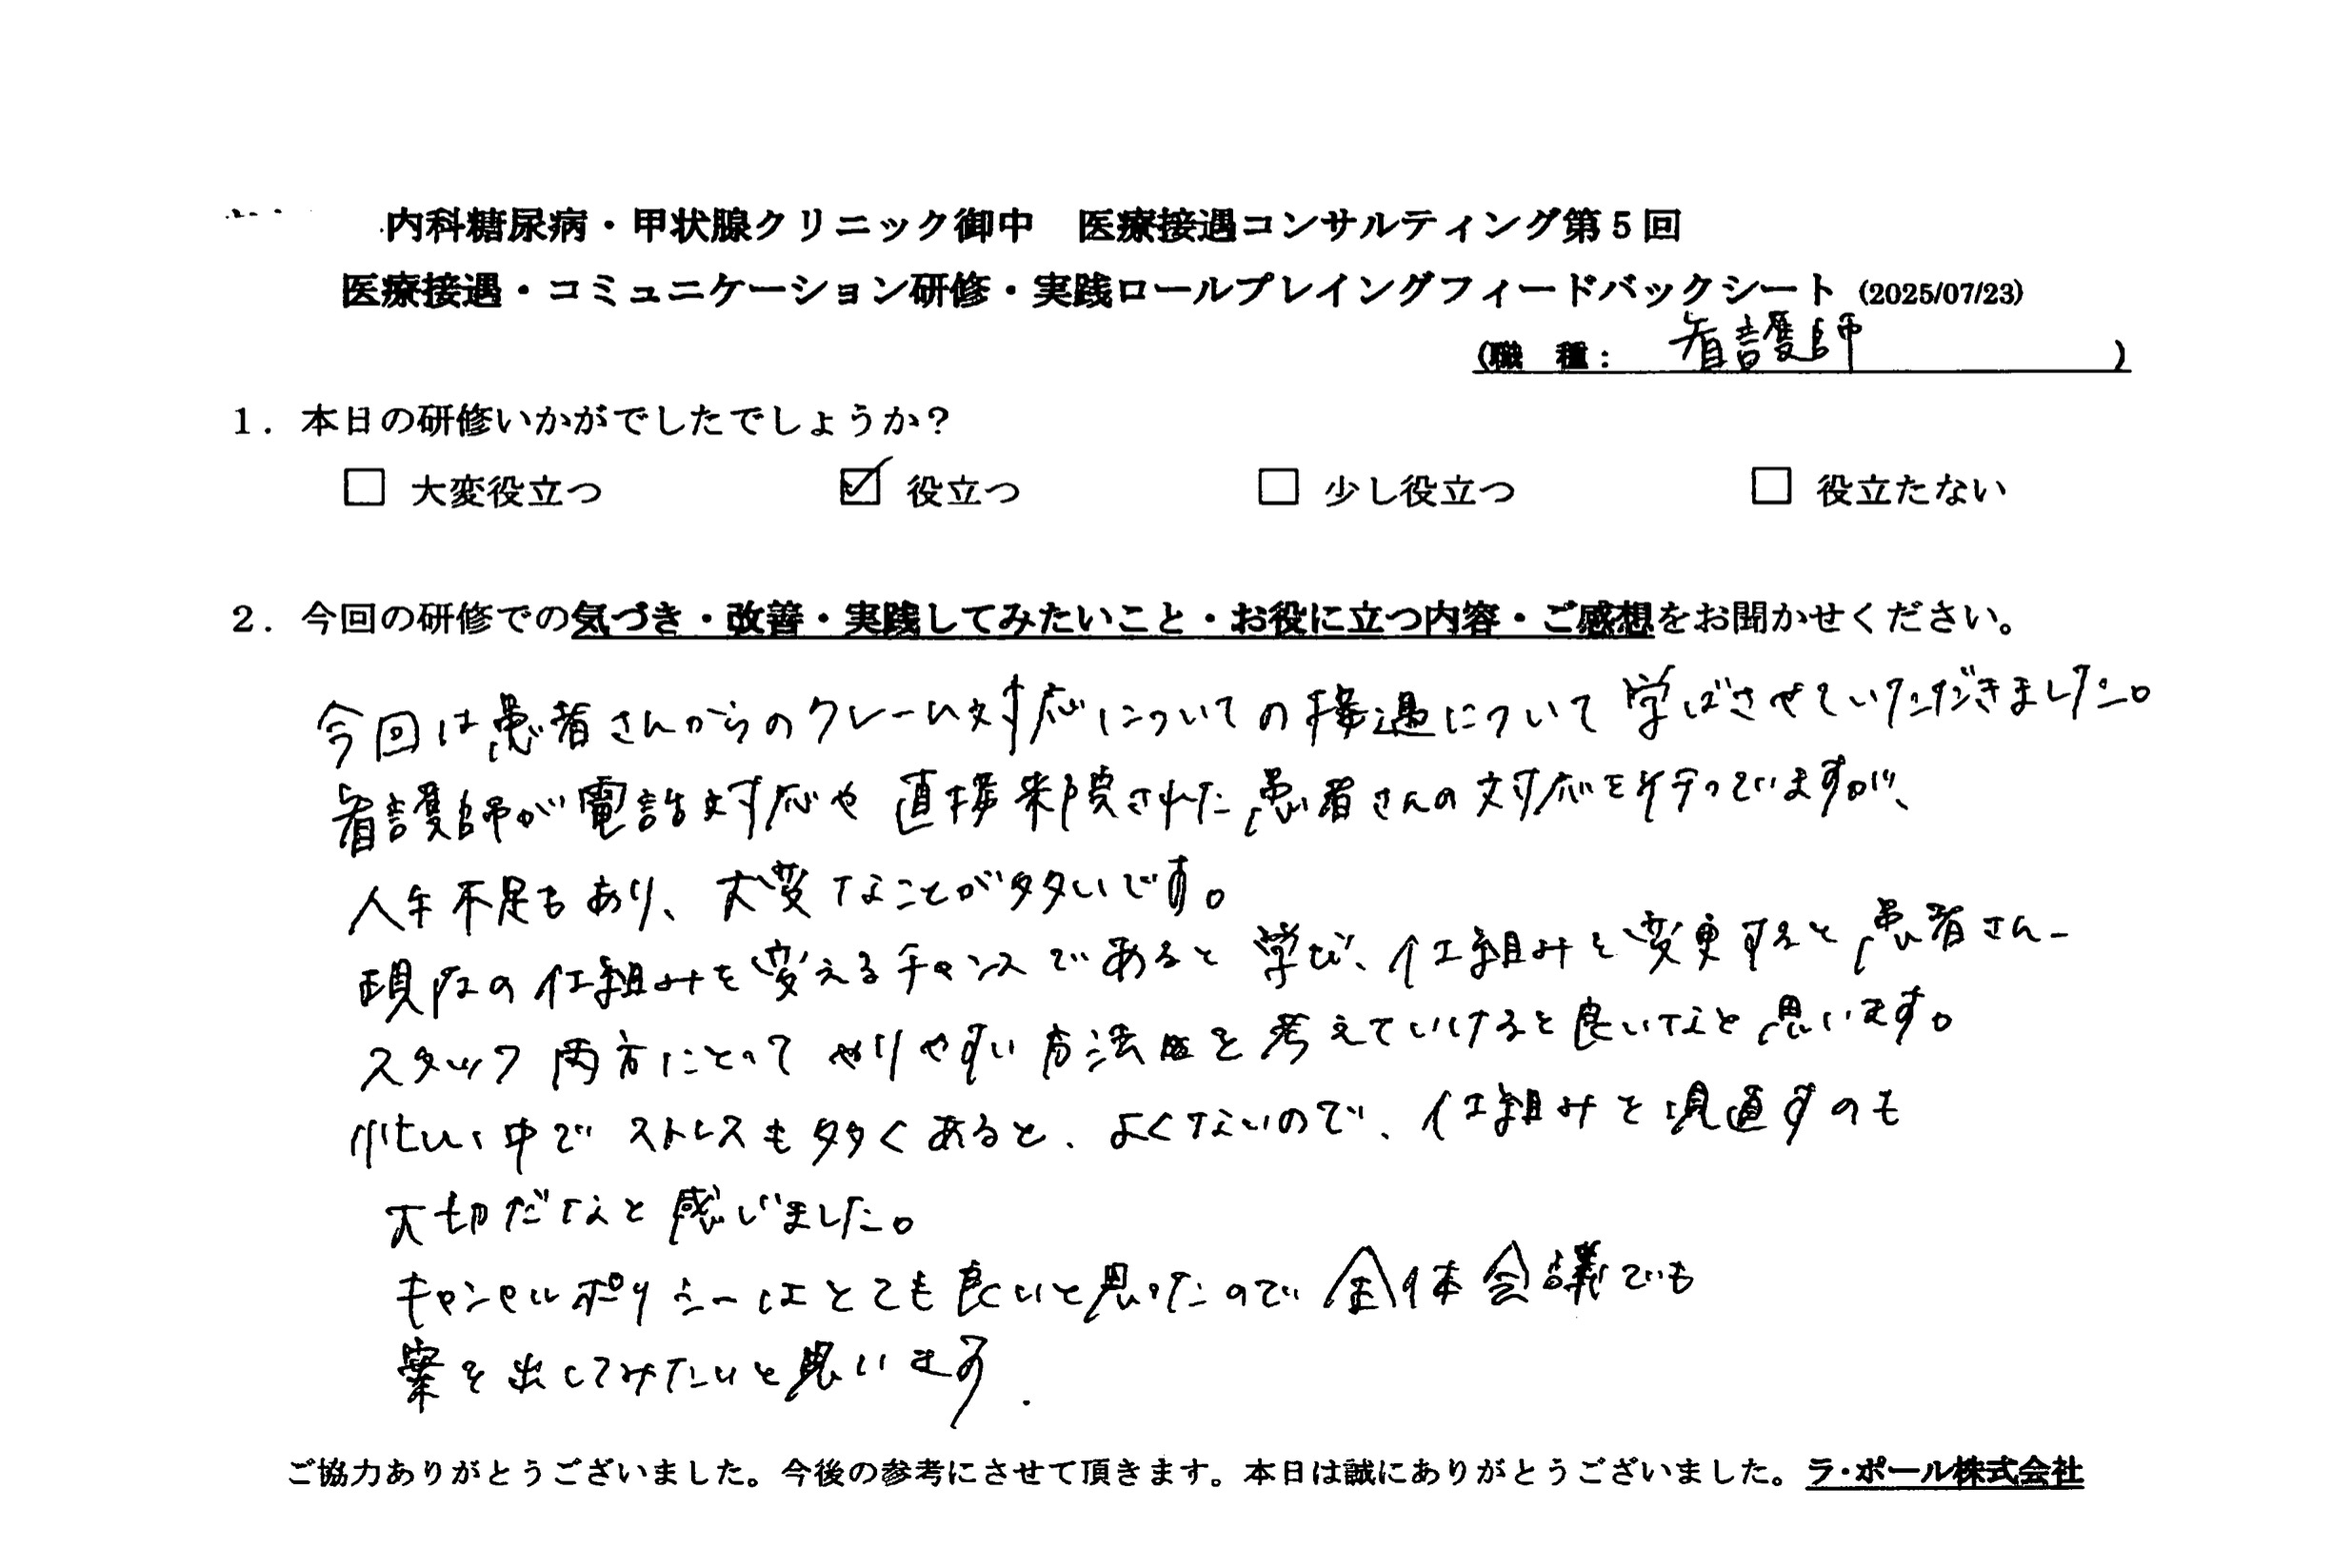 内科糖尿病・甲状腺クリニック御中　医療接遇コンサルティング第５回
医療接遇・コミュニケーション研修・実践ロールプレイングフィードバックシート (2025/07/23)
(職　種：　看護師　)
１．本日の研修いかがでしたでしょうか？
□ 大変役立つ　☑ 役立つ　□ 少し役立つ　□ 役立たない
２．今回の研修での気づき・改善・実践してみたいこと・お役に立つ内容・ご感想をお聞かせください。
今回は患者さんからのクレーム対応についての接遇について学ばさせていただきました。
看護師が電話対応や直接来院された患者さんの対応を行っていますが、
人手不足もあり、大変なことが多いです。
現在の仕組みを変えるチャンスであると学び、仕組みを変更すると患者さん-
スタッフ両方にとってやりやすい方法を考えていけると良いなと思います。
忙しい中でストレスも多くあると、よくないので、仕組みを見直すのも
大切だなと感じました。
キャンセルポリシーはとても良いと思ったので全体会議でも
案を出してみたいと思います.
ご協力ありがとうございました。今後の参考にさせて頂きます。本日は誠にありがとうございました。ラ・ポール株式会社